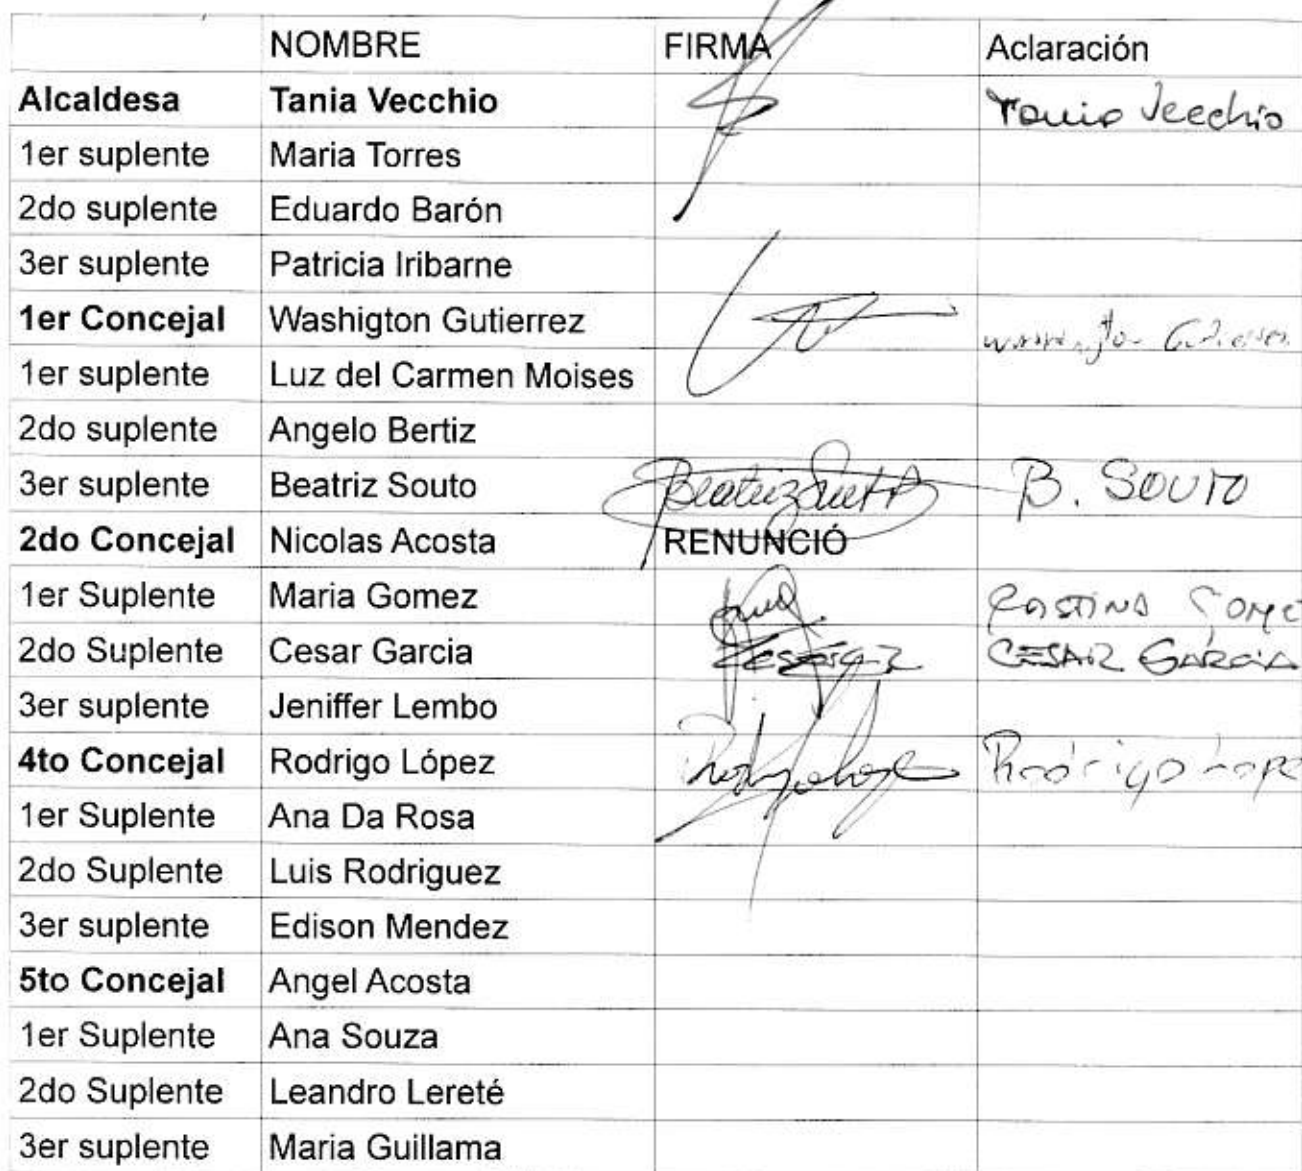 NOMBRE FIRMA Aclaración
Alcaldesa Tania Vecchio Tania Vecchio
1er suplente Maria Torres
2do suplente Eduardo Barón
3er suplente Patricia Iribarne
1er Concejal Washigton Gutierrez
1er suplente Luz del Carmen Moises
2do suplente Angelo Bertiz
3er suplente Beatriz Souto Beatriz Souto B. SOUTO
2do Concejal Nicolas Acosta RENUNCIÓ
1er Suplente Maria Gomez
2do Suplente Cesar Garcia CESAR GARCIA
3er suplente Jeniffer Lembo
4to Concejal Rodrigo López Rodrigo Lope
1er Suplente Ana Da Rosa
2do Suplente Luis Rodriguez
3er suplente Edison Mendez
5to Concejal Angel Acosta
1er Suplente Ana Souza
2do Suplente Leandro Lereté
3er suplente Maria Guillama